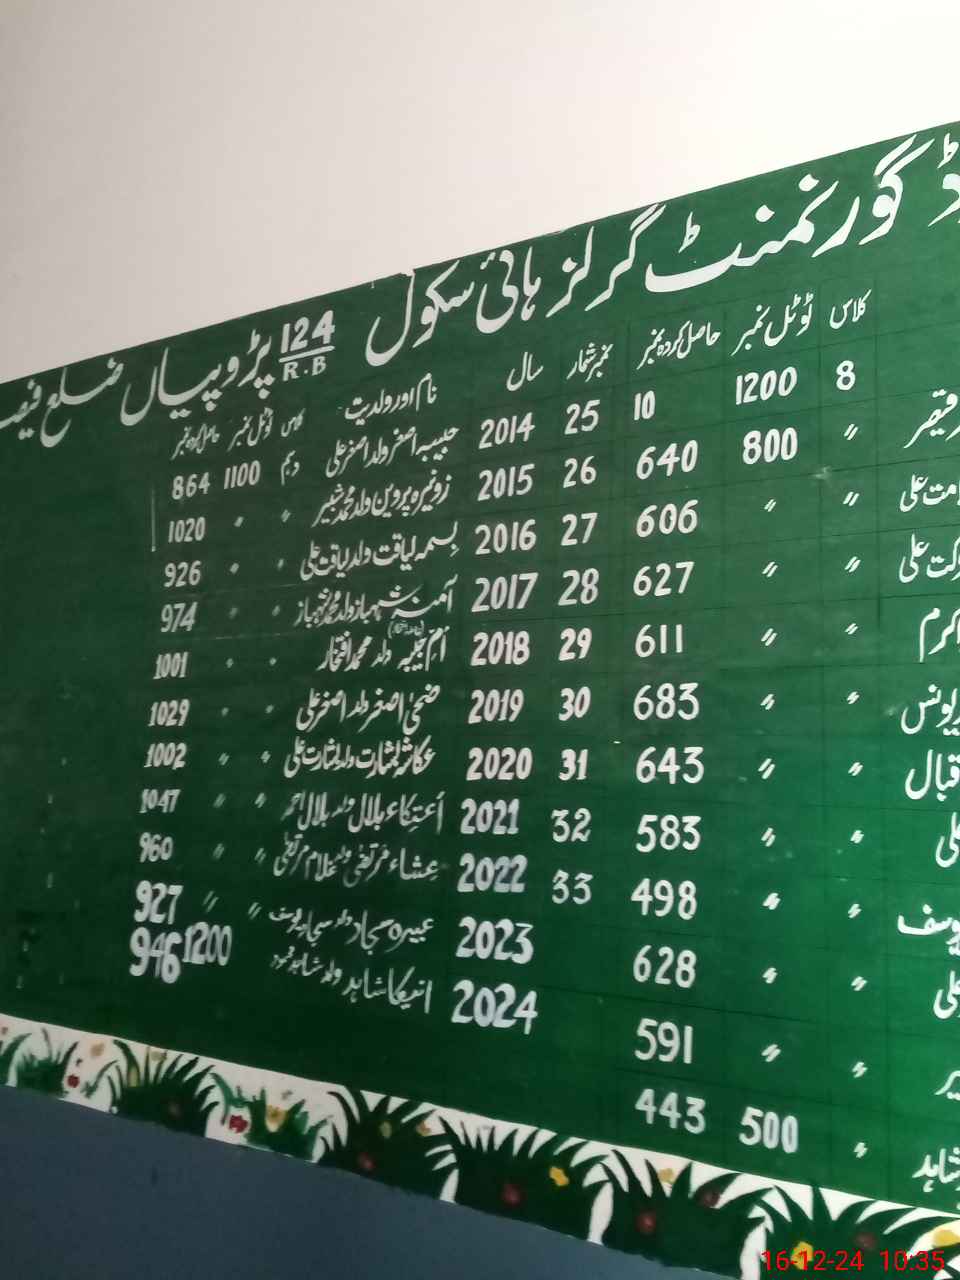 گورنمنٹ گرلز ہائی سکول 124 R.B پڑوپیاں ضلع
کلاس ٹوٹل نمبر حاصل کردہ نمبر نمبر شمار سال نام اور ولدیت کلاس ٹوٹل نمبر حاصل کردہ نمبر
8 1200 10 25 2014 حبیبہ اصغر ولد اصغر علی دہم 1100 864
〃 800 640 26 2015 زونیرہ پروین ولد محمد شبیر 〃 〃 1020
علی 〃 〃 606 27 2016 بسمہ لیاقت ولد لیاقت علی 〃 〃 926
علی 〃 〃 627 28 2017 آمنہ شہباز ولد محمد شہباز 〃 〃 974
اکرم 〃 〃 611 29 2018 ولد محمد افتخار 〃 〃 1001
یونس 〃 〃 683 30 2019 ضحیٰ اصغر ولد اصغر علی 〃 〃 1029
〃 〃 643 31 2020 عکاشہ بشارت ولد بشارت علی 〃 〃 1002
〃 〃 583 32 2021 بلال ولد بلال احمد 〃 〃 1047
یوسف 〃 〃 498 33 2022 عشاء مرتضیٰ ولد غلام مرتضیٰ 〃 〃 960
علی 〃 〃 628 2023 عبیرہ سجاد ولد سجاد یوسف 〃 〃 927
〃 〃 591 2024 انیکا شاہد ولد شاہد محمود 1200 946
شاہد 〃 500 443
16-12-24 10:35